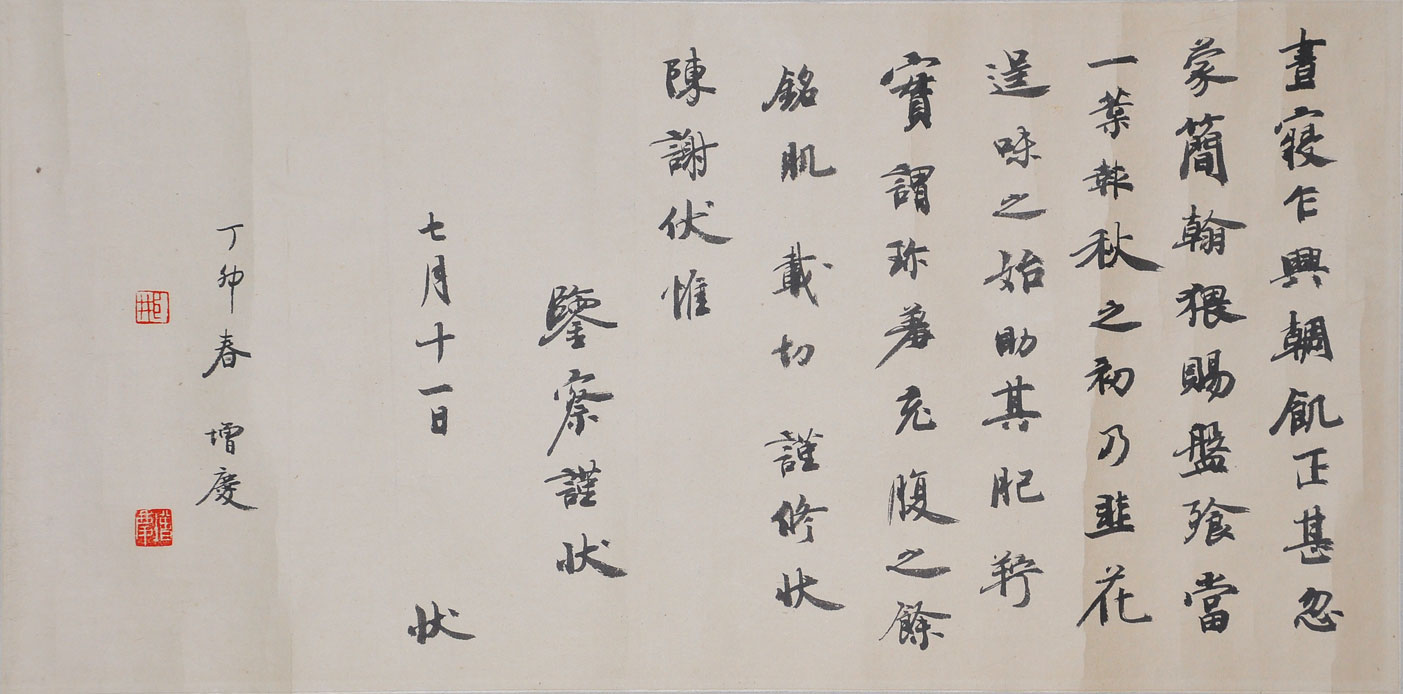 晝寢乍興輖飢正甚忽
蒙簡翰猥賜盤飧當
一葉報秋之初乃韭花
逞味之始助其肥羜
實謂珎羞充腹之餘
銘肌載切謹修狀
陳謝伏惟
鑒察謹狀
七月十一日 狀
丁卯春 增慶
增慶